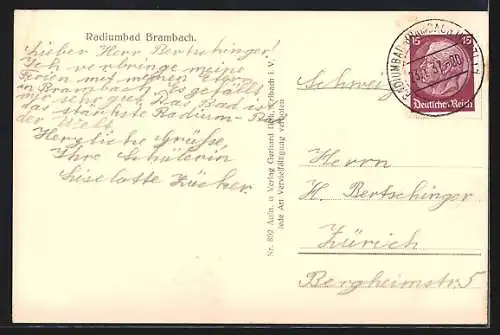 Radiumbad Brambach.
Lieber Herr Bertschinger!
Ich verbringe meine
Ferien mit meinen Eltern
in Brambach. Es gefällt
mir sehr gut. Das Bad ist
das stärkste Radium-Bad
der Welt.
Herzliche Grüße,
Ihre Schülerin
Liselotte Zücker.
Nr. 892 Aufn. u. Verlag Gerhard
jede Art Vervielfältigung verboten
RADIUMBAD BRAMBACH
15 15
Deutsches Reich
Schweiz
Herrn
H. Bertschinger
Zürich
Bergheimstr. 5